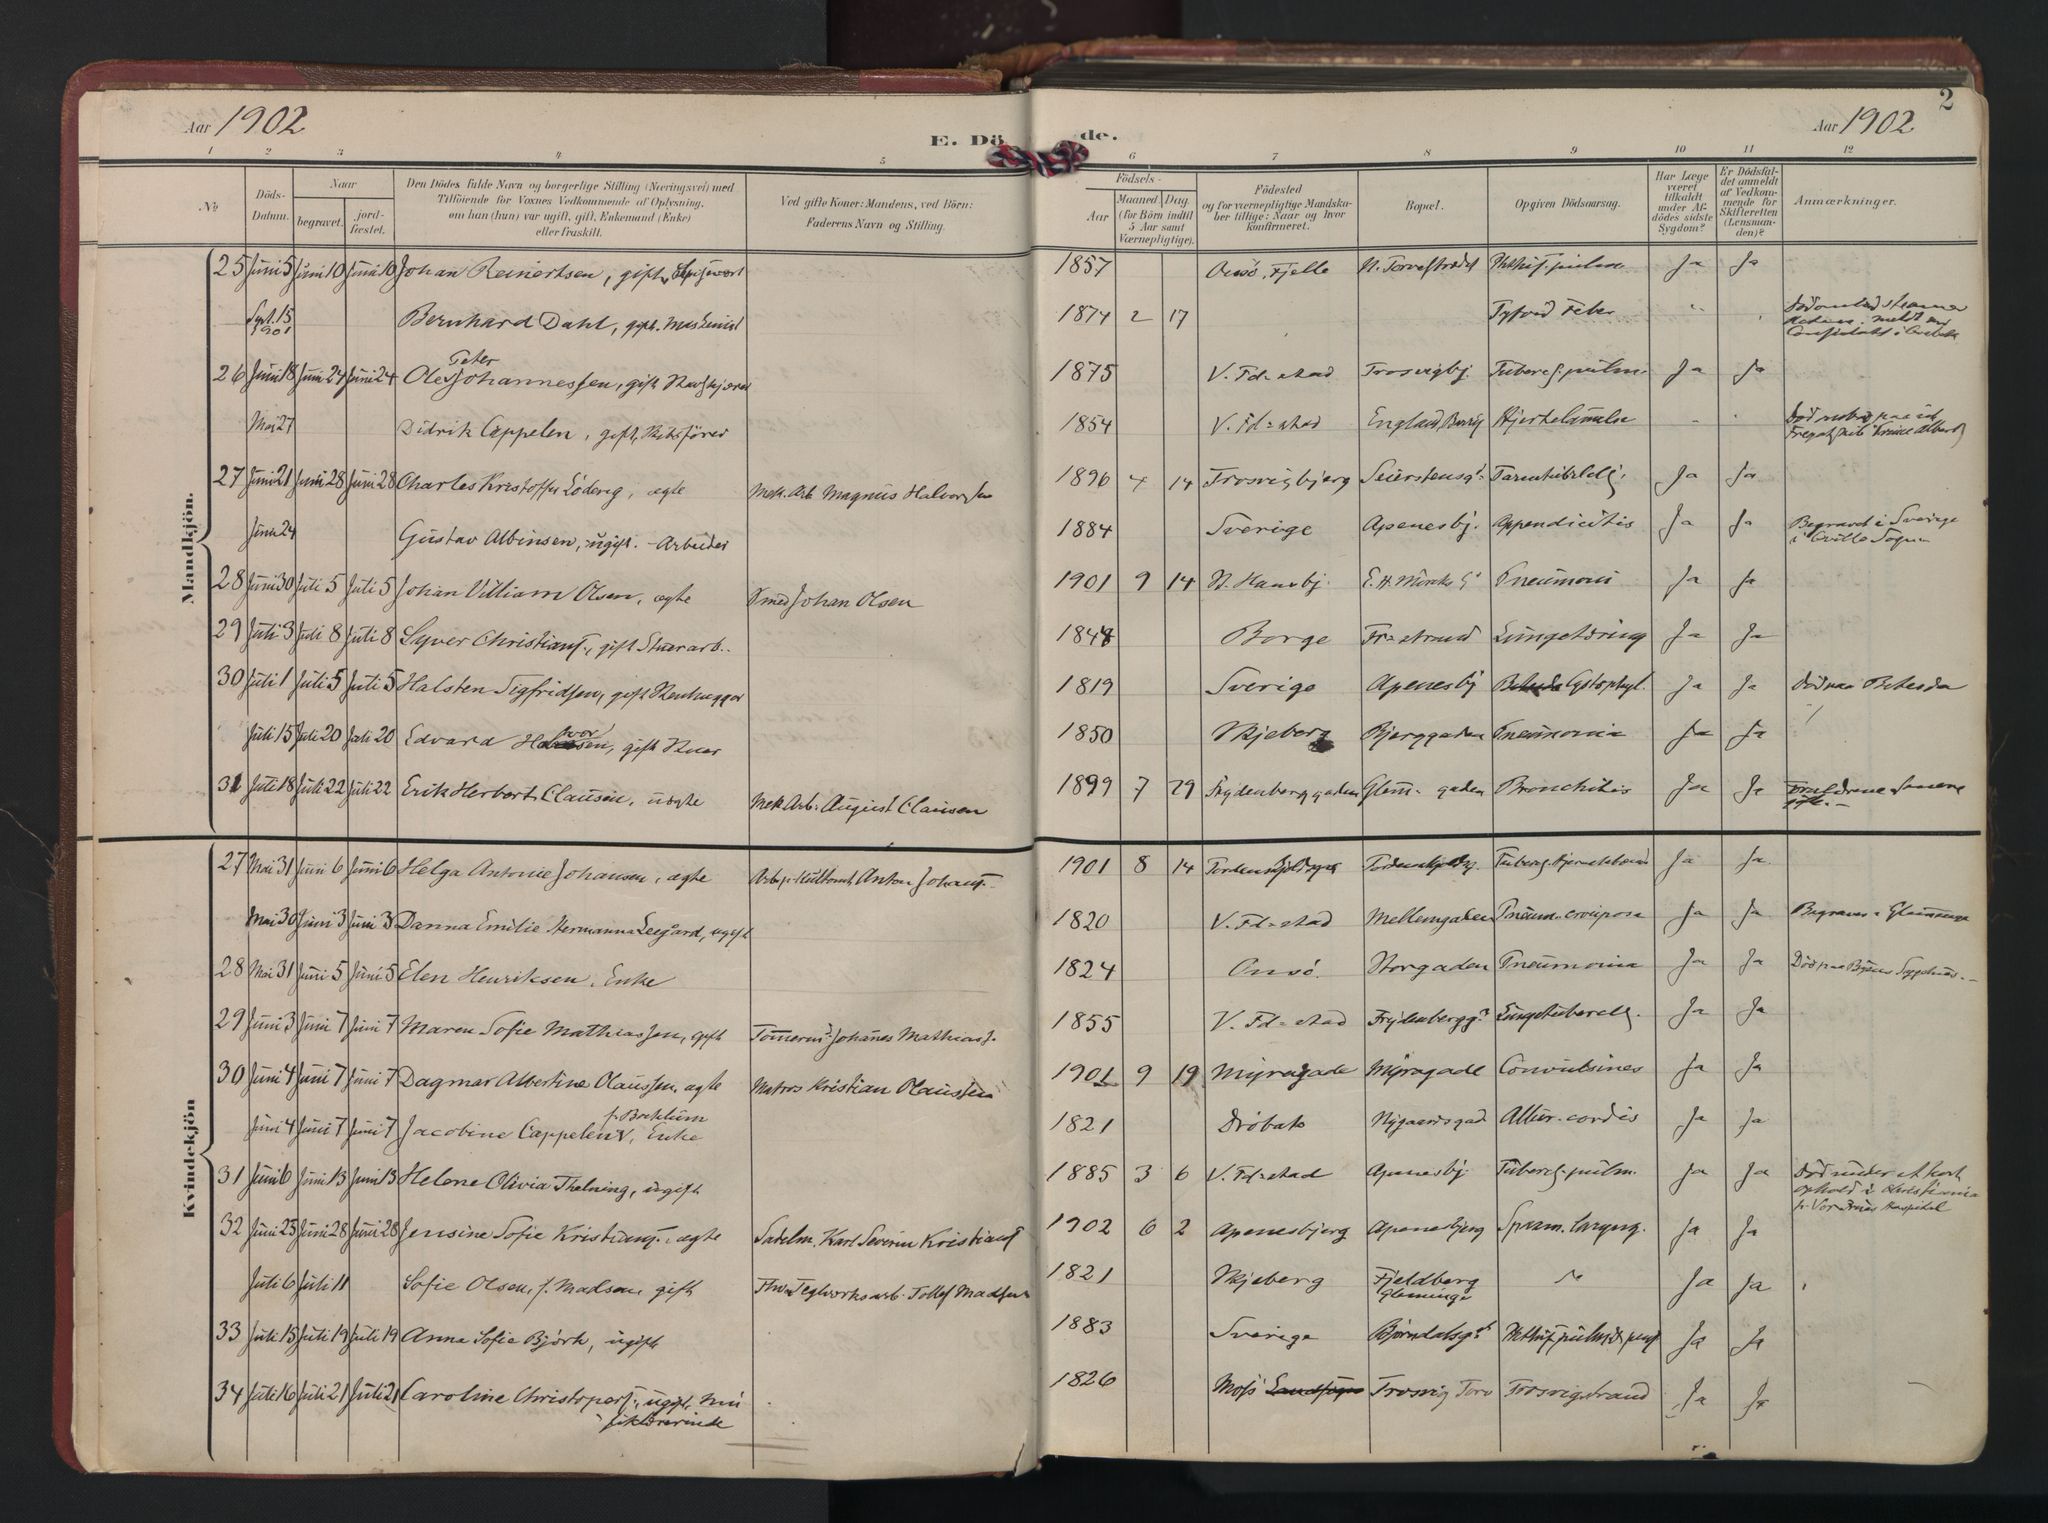 Aar 1902
E. Dö de.
Aar 1902
2
1 2 3 4 5 6 7 8 9 10 11 12
No
Döds-Datum.
Naar
begravet.
jord-fæstet.
Den Dödes fulde Navn og borgerlige Stilling (Næringsvei) med
Tilföiende for Voxnes Vedkommende af Oplysning,
om han (hun) var ugift, gift, Enkemand (Enke)
eller fraskilt.
Ved gifte Koner: Mandens, ved Börn:
Faderens Navn og Stilling.
Födsels-
Aar
Maaned. Dag.
(for Börn indtil
5 Aar samt
Værnepligtige).
Födested
og for værnepligtige Mandska-
ber tillige: Naar og hvor
konfirmeret.
Bopæl.
Opgiven Dödsaarsag.
Har Læge
været
tilkaldt
under Af-
dödes sidste
Sygdom?
Er Dödsfal-
det anmeldt
af Vedkom-
mende for
Skifteretten
(Lensman-
den)?
Anmærkninger.
Mandkjön.
25 Juni 5 Juni 10 Juni 10 Johan Reinertsen, gift 1857 Onsö, Fjelle N. Torvestrædet Phthis. pulm. Ja Ja
Sept. 15 1901 Bernhard Dahl, gift. Maskinist 1874 2 17 Tyfoid Feber
26 Juni 18 Juni 24 Juni 24 Ole Peter Johannessen, gift 1875 V. Fd=stad Trosvigbj. Tubercl. pulm. Ja Ja
Mai 27 Didrik Cappelen, gift, Skibsförer 1854 V. Fd=stad England Hjertelammelse
27 Juni 21 Juni 28 Juni 28 Charles Kristoffer Löderig, ægte Mek. Arb. Magnus Halvorsen 1896 4 14 Trosvigbjerg Seierstensg. Ja Ja
Juni 24 Gustav Albinsen, ugift. - Arbeider 1884 Sverige Apenesbj. Appendicitis Ja Ja Begravet i Sverige
i Qville Sogn
28 Juni 30 Juli 5 Juli 5 Johan Villiam Olsen, ægte Smed Johan Olsen 1901 9 14 Pneumoni Ja Ja
29 Juli 3 Juli 8 Juli 8 Syver Christians., gift Stuerarb. 1848 Borge Fr=strand Lungetæring Ja Ja
30 Juli 1 Juli 5 Juli 5 Halsten Sigfridsen, gift Stenhugger 1819 Sverige Apenesbj Ja Ja Död paa Betesda
Juli 15 Juli 20 Juli 20 Edvard Halvorsen, gift 1850 Skjeberg Bjerggaden Pneumonia Ja Ja
31 Juli 18 Juli 22 Juli 22 Erik Herbert Clausen, uægte Mek. Arb. August Clausen 1899 7 29 Frydenberggaden Glem. gaden Bronchitis Ja Ja Forældrene senere
gift. -
Kvindekjön
27 Mai 31 Juni 6 Juni 6 Helga Antonie Johansen, ægte Anton Johans. 1901 8 14 Tordenskjoldsgade Ja Ja.
Mai 30 Juni 3 Juni 3 Danna Emilie Hermanna Leegård, ugift 1820 V. Fd=stad Mellemgaden Pneum. crouposa Ja Ja
28 Mai 31 Juni 5 Juni 5 Elen Henriksen, Enke 1824 Onsö. Storgaden Pneumonia Ja Ja Död paa Byens Sygehus. -
29 Juni 3 Juni 7 Juni 7 Maren Sofie Mathiassen, gift Tömerm. Johanes Mathiass. 1855 V. Fd=stad Frydenbergg. Lungetubercl. Ja Ja
30 Juni 4 Juni 7 Juni 7 Dagmar Albertine Olaussen, ægte Matros Kristian Olaussen 1901 9 19 Myragade Myragade Convulsines Ja Ja
Juni 4 Juni 7 Juni 7 Jacobine Cappelen f. Bocklum, Enke 1821 Dröbak Nygaardsgad Attur. cordis Ja Ja
31 Juni 6 Juni 13 Juni 13 Helene Olivia Thelning, ugift 1885 3 6 V. Fd=stad Apenesbj Tubercl. pulm. Ja Ja Död under et kort
ophold i Kristiania
p. Vor Frues Hospital
32 Juni 25 Juni 28 Juni 28 Jensine Sofie Kristians., ægte Sadelm. Karl Severin Kristians. 1902 6 2 Apenesbjerg Apenesbjerg Spasm. laryng. Ja Ja
Juli 6 Juli 11 Sofie Olsen, f. Madsen, gift Teglverksarb. Tollef Madsen 1821 Skjeberg Fjeldberg
Glemminge Ja Ja
33 Juli 15 Juli 19 Juli 19 Anna Sofie Björk, ugift 1883 Sverige Björndalsg. Ja Ja
34 Juli 16 Juli 21 Juli 21 Caroline Christophers., ugift, Mu
siklærerinde 1826 Moss Trosvig Torv Trosvigstrand Ja Ja